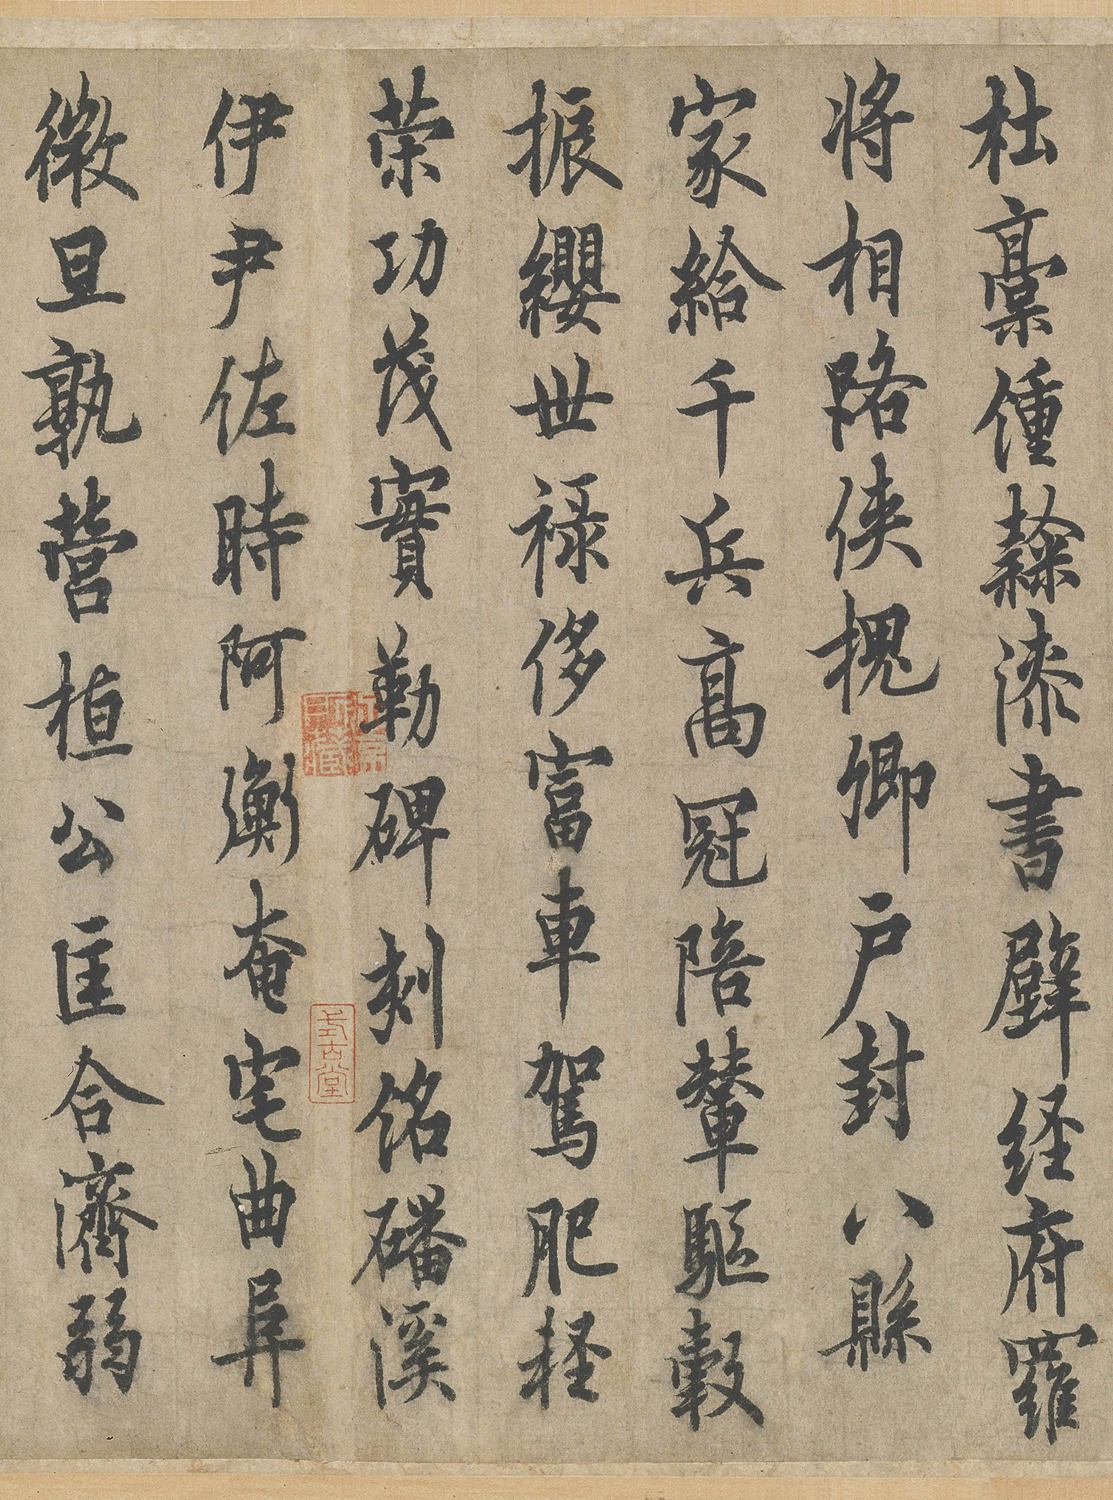 杜稾鍾隸漆書壁経府羅
将相路侠槐卿户封八縣
家給千兵高冠陪輦驅轂
振纓世禄侈富車駕肥軽
策功茂實勒碑刻銘磻溪
伊尹佐時阿衡奄宅曲阜
微旦孰營桓公匡合濟弱
式古堂